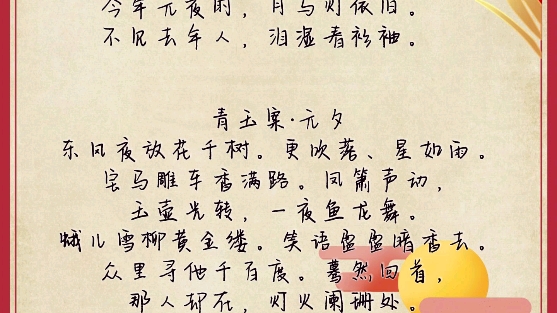 今年元夜时，月与灯依旧。
不见去年人，泪湿春衫袖。
青玉案·元夕
东风夜放花千树。更吹落、星如雨。
宝马雕车香满路。凤箫声动，
玉壶光转，一夜鱼龙舞。
蛾儿雪柳黄金缕。笑语盈盈暗香去。
众里寻他千百度。蓦然回首，
那人却在，灯火阑珊处。